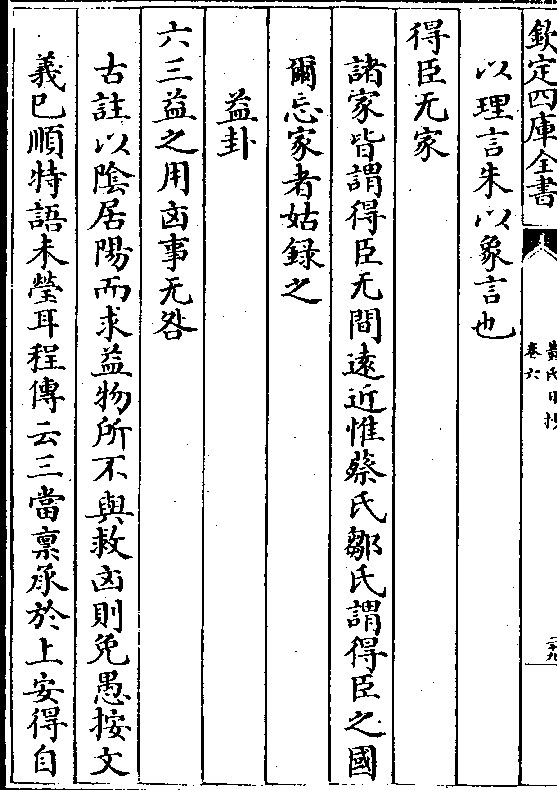 欽定四庫全書
黃氏日抄
卷六
以理言朱以象言也
得臣无家
諸家皆謂得臣无間遠近惟蔡氏鄒氏謂得臣之國
爾忘家者姑録之
益卦
六三益之用凶事无咎
古註以陰居陽而求益物所不與救凶則免愚按文
義已順特語未瑩耳程傳云三當禀承於上安得自